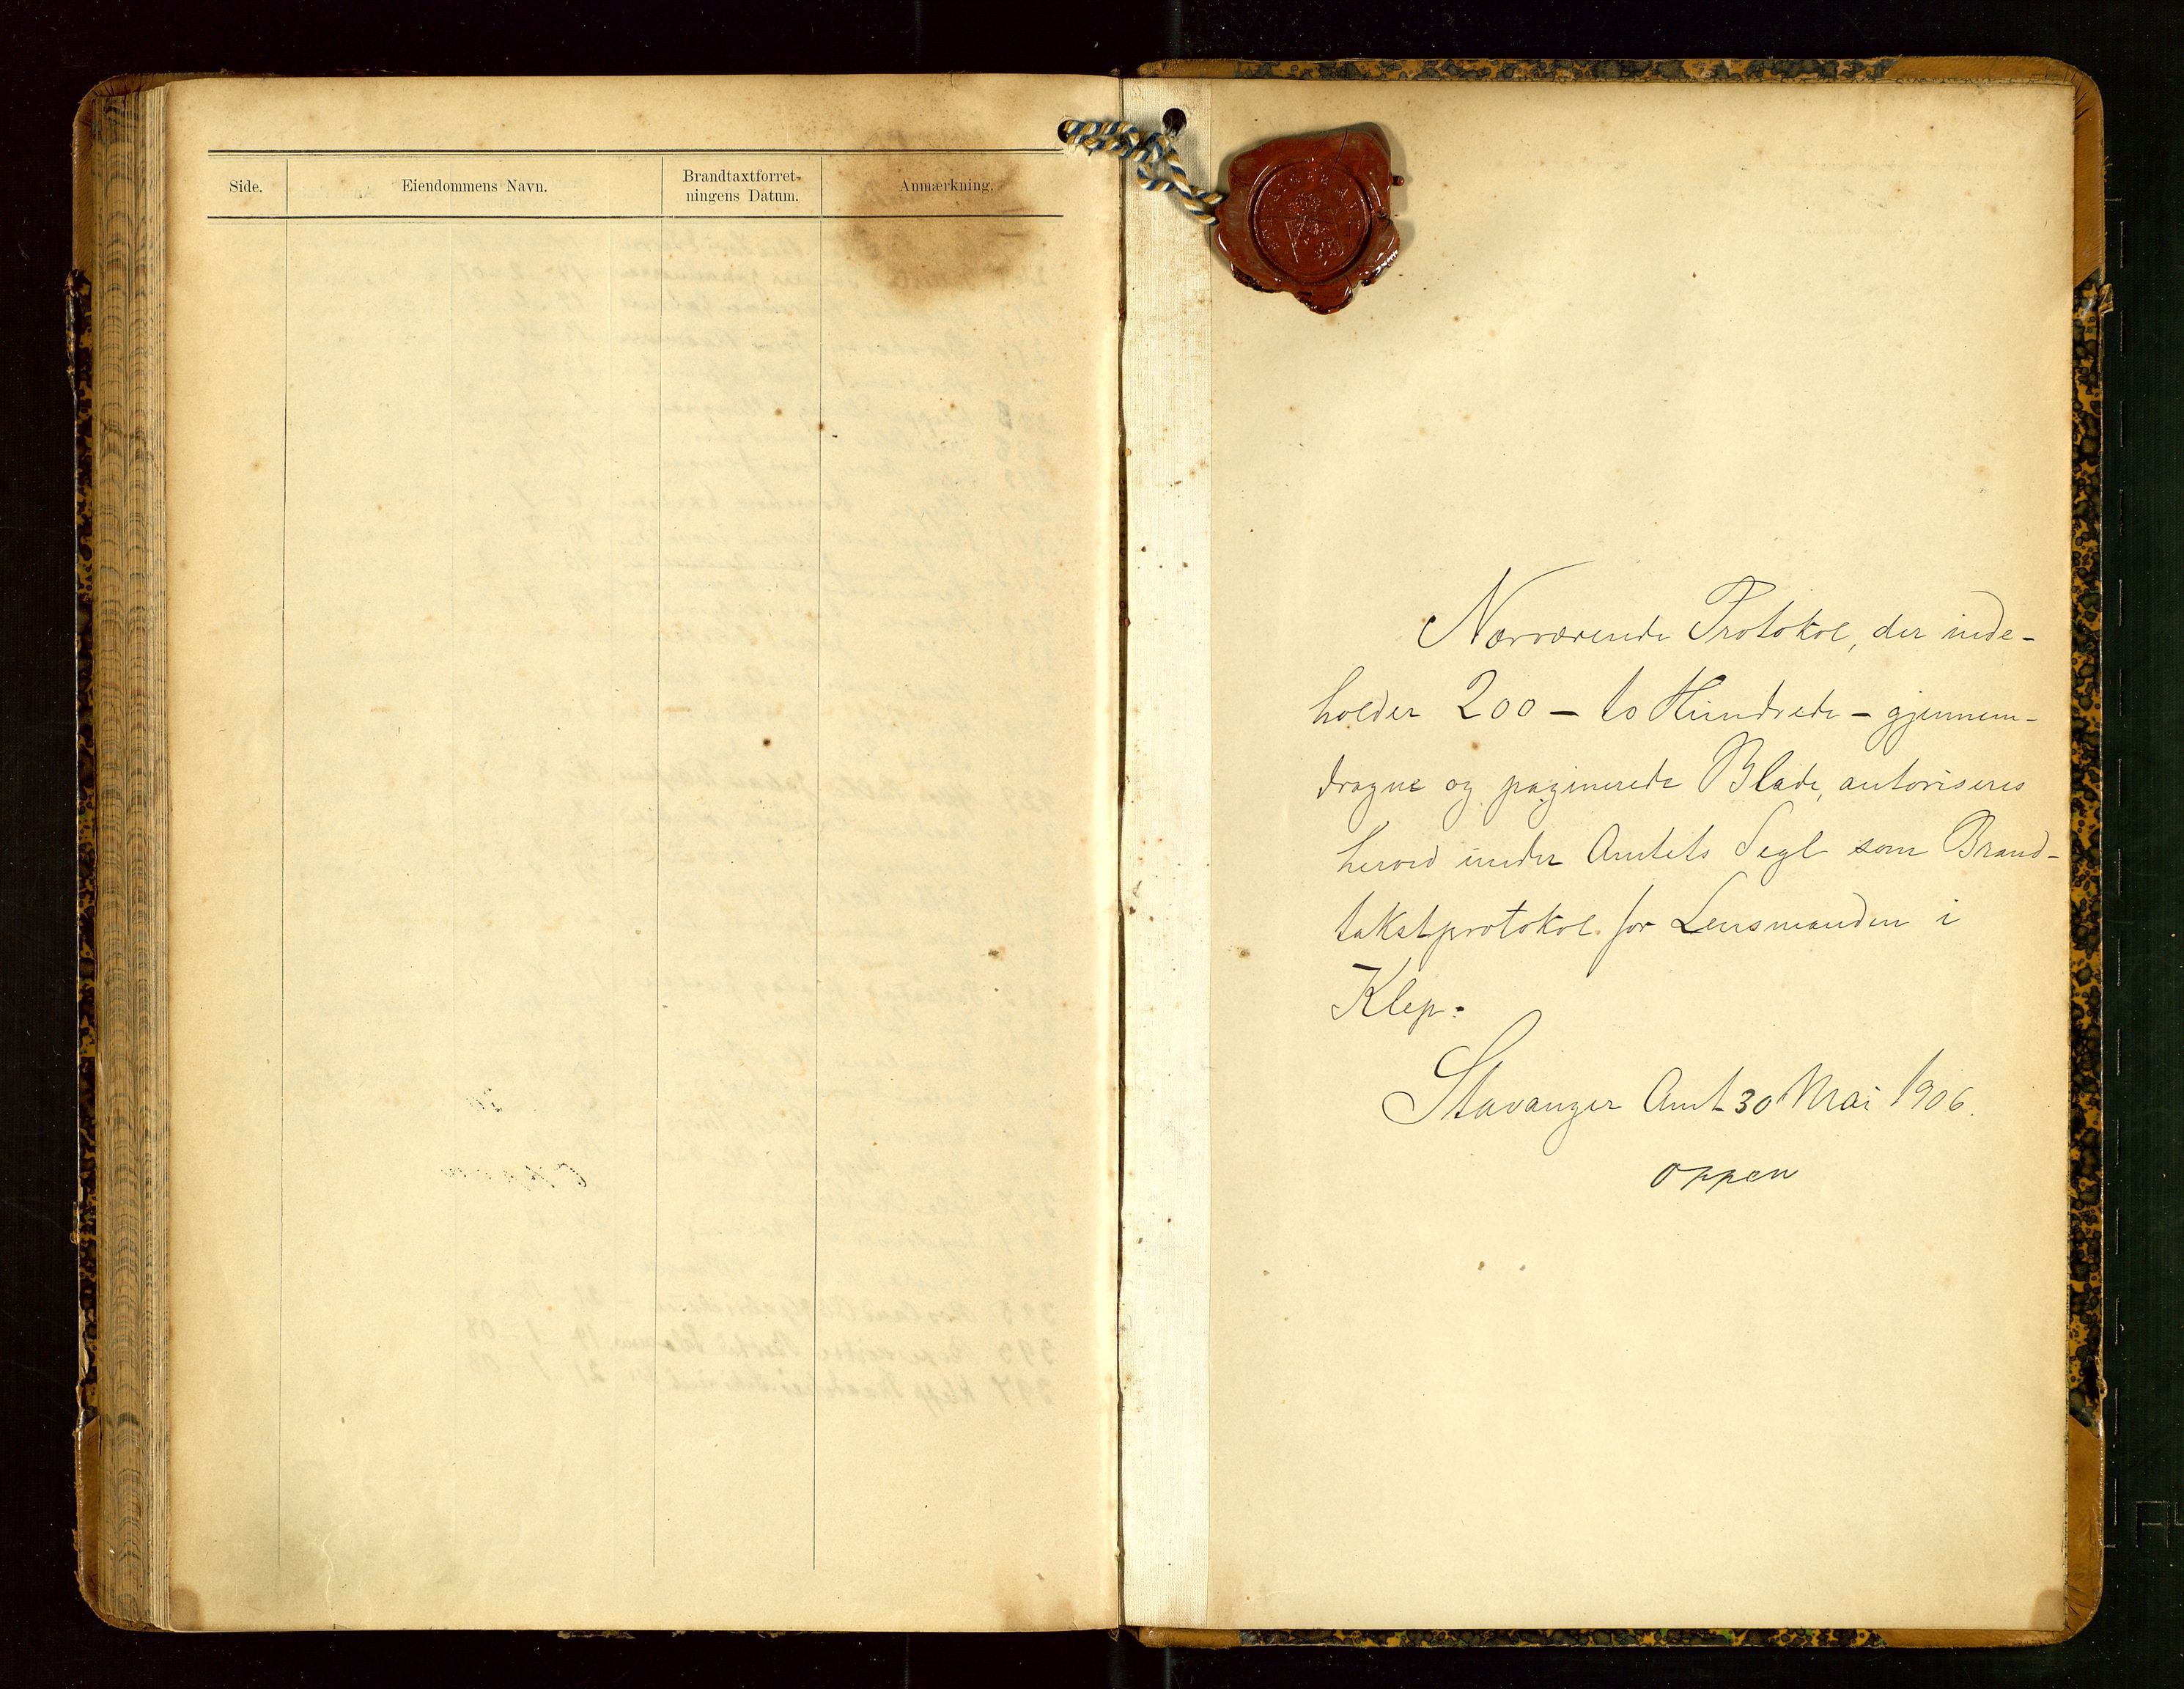 Side.
Eiendommens Navn.
Brandtaxtforret-
ningens Datum.
Anmærkning.
Nærværende Protokol, der inde-
holder 200 – to Hundrede – gjennem-
dragne og paginerede Blade, autoriseres
herved under Amtets Segl som Brand-
takstprotokol for Lensmanden i
Klep.
Stavanger Amt 30 Mai 1906.
Oppen